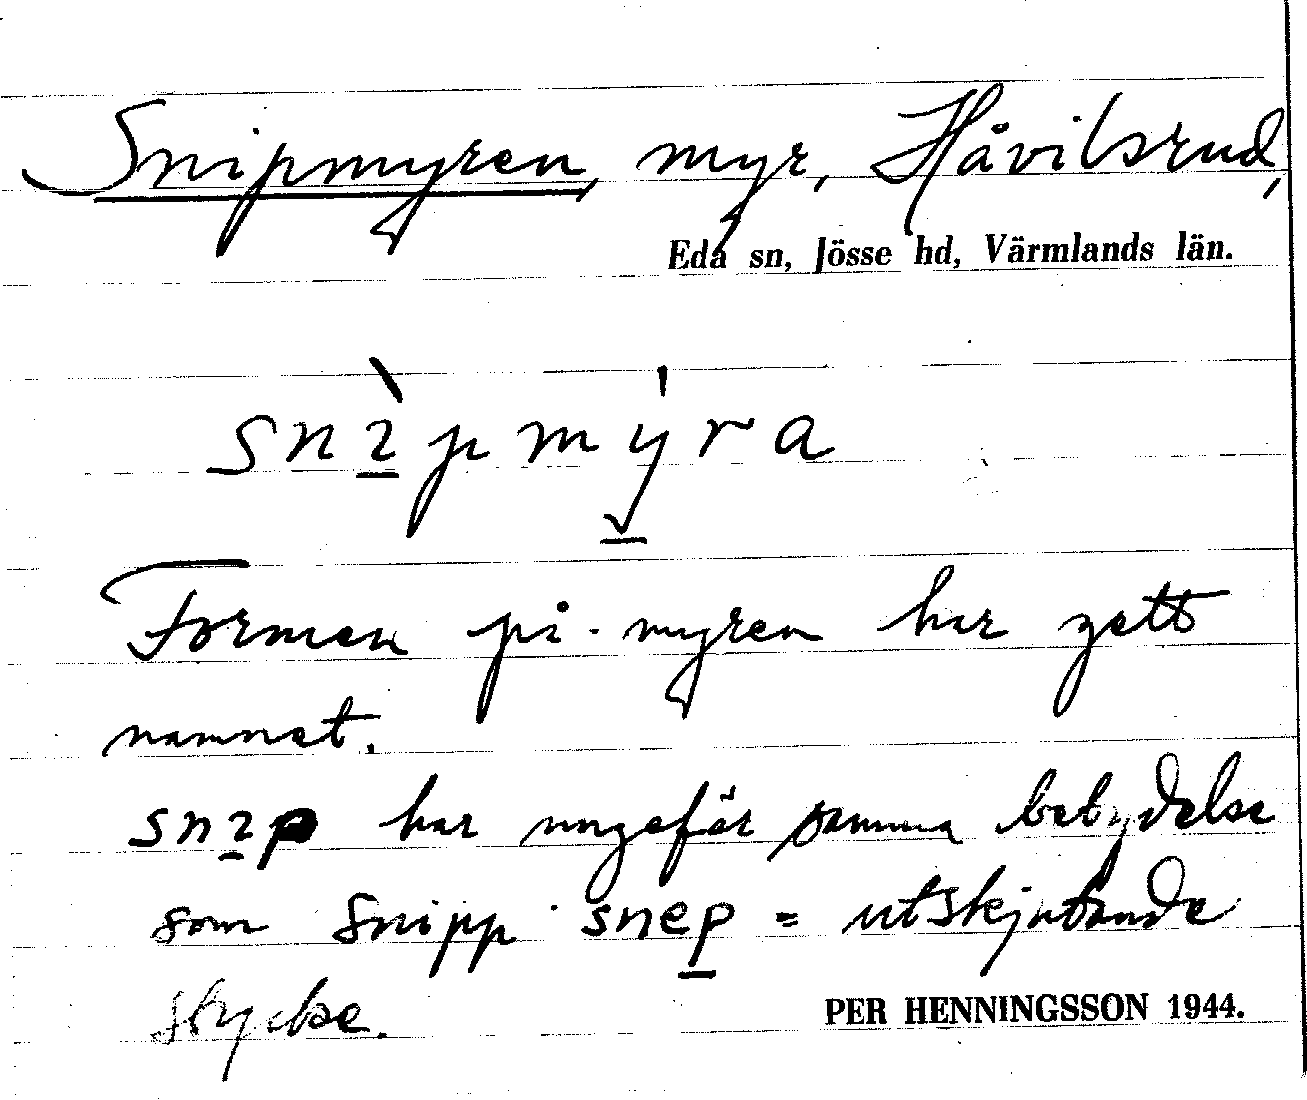 Snipmyren, myr, Håvilsrud,
Eda sn, Jösse hd, Värmlands län.
snɩ̀pmýra
Formen på myren har gett
namnet.
snɩp har ungefär samma betydelse
som snipp snep = utskjutande
stycke.
PER HENNINGSSON 1944.